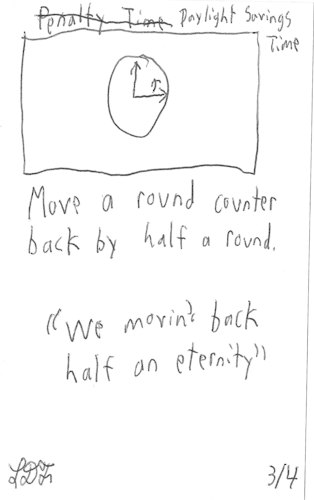 Penalty Time Daylight Savings
Time
Move a round counter
back by half a round.
"We movin' back
half an eternity"
3/4